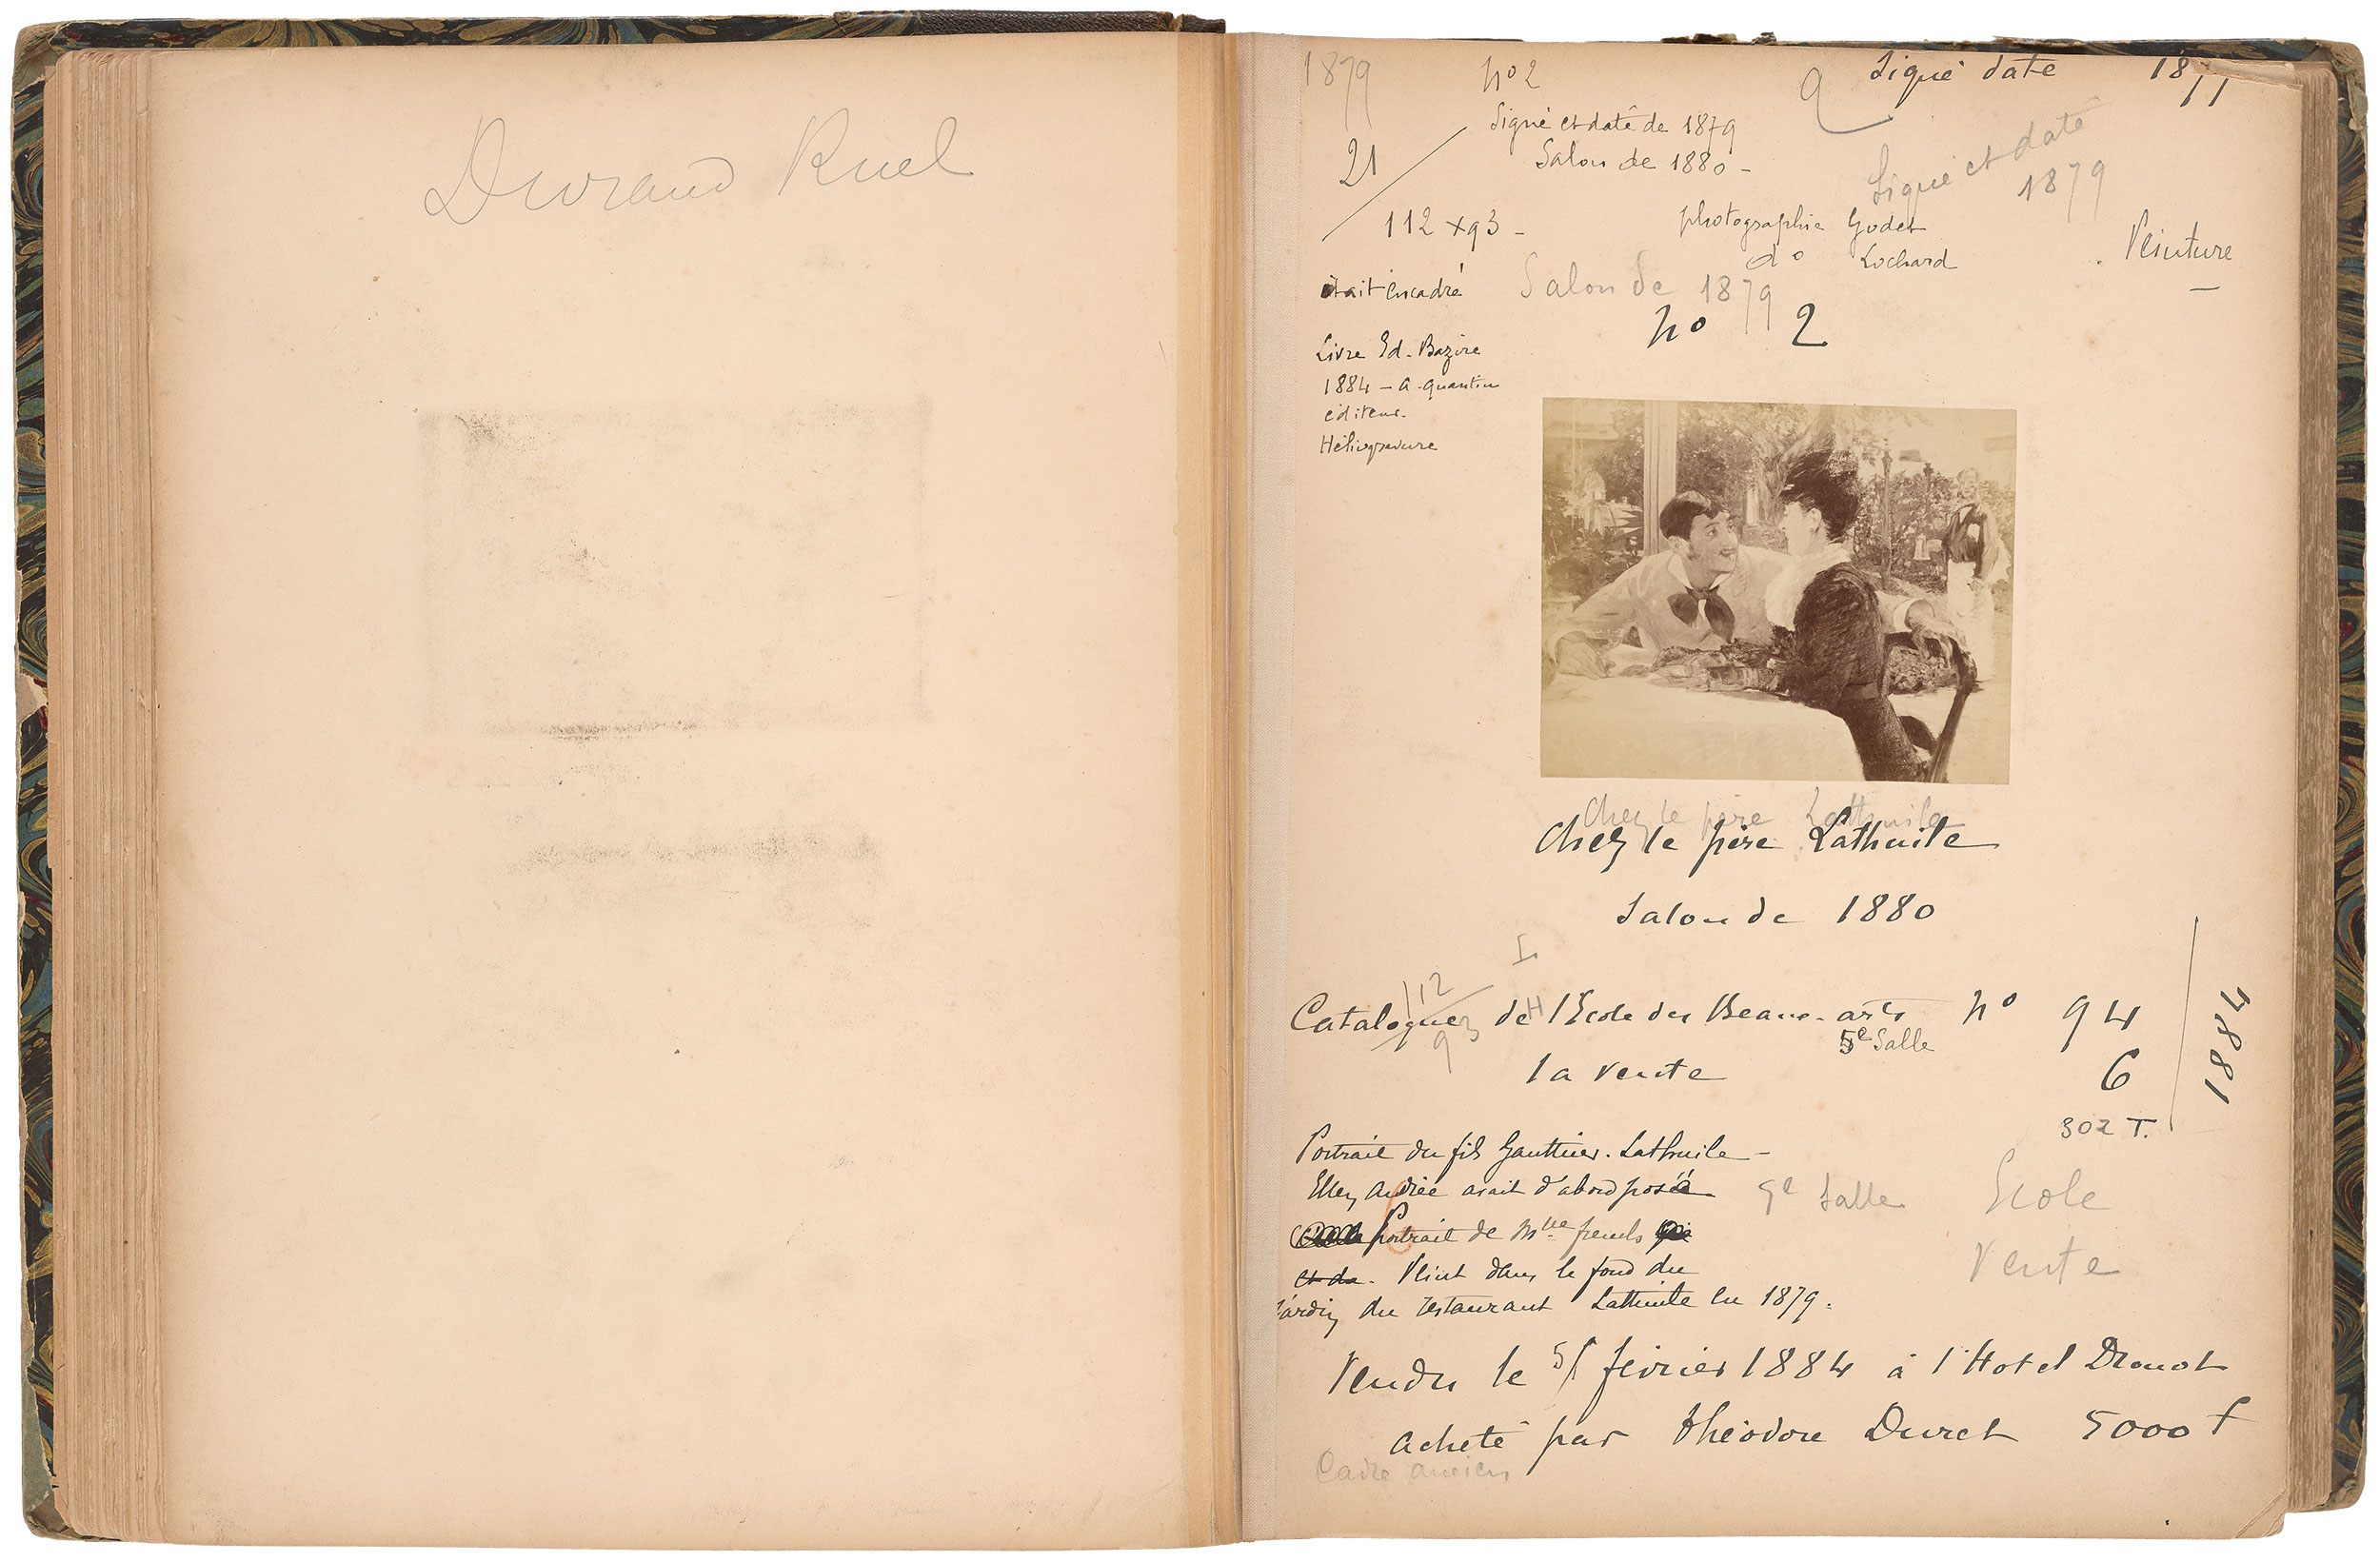 Durand Ruel
1879
no 2
9 Signé daté 1877
Signé et daté de 1879
21
Salon de 1880 -
Signé et daté
1879
112 x 93 -
photographie Godet
do Lochard
Peinture
était encadré
Salon de 1879
no 2
Livre Ed. Bazire
1884 - A. Quantin
éditeur.
Héliogravure
Chez le père Lathuile
Chez le père Lathuile
Salon de 1880
112
93
H
Catalogue de l'Ecole des Beaux-arts no 94
5e Salle
la vente 6
1884
302 T.
Portrait du fils Gauthier. Lathuile -
Ellen Andrée avait d'abord posé
5e Salle Ecole
Portrait de Mlle french
et du. Peint dans le fond du
Vente
jardin du restaurant Lathuile en 1879.
Vendu le 5 février 1884 à l'Hotel Drouot
acheté par Théodore Duret 5000 f
Cadre ancien